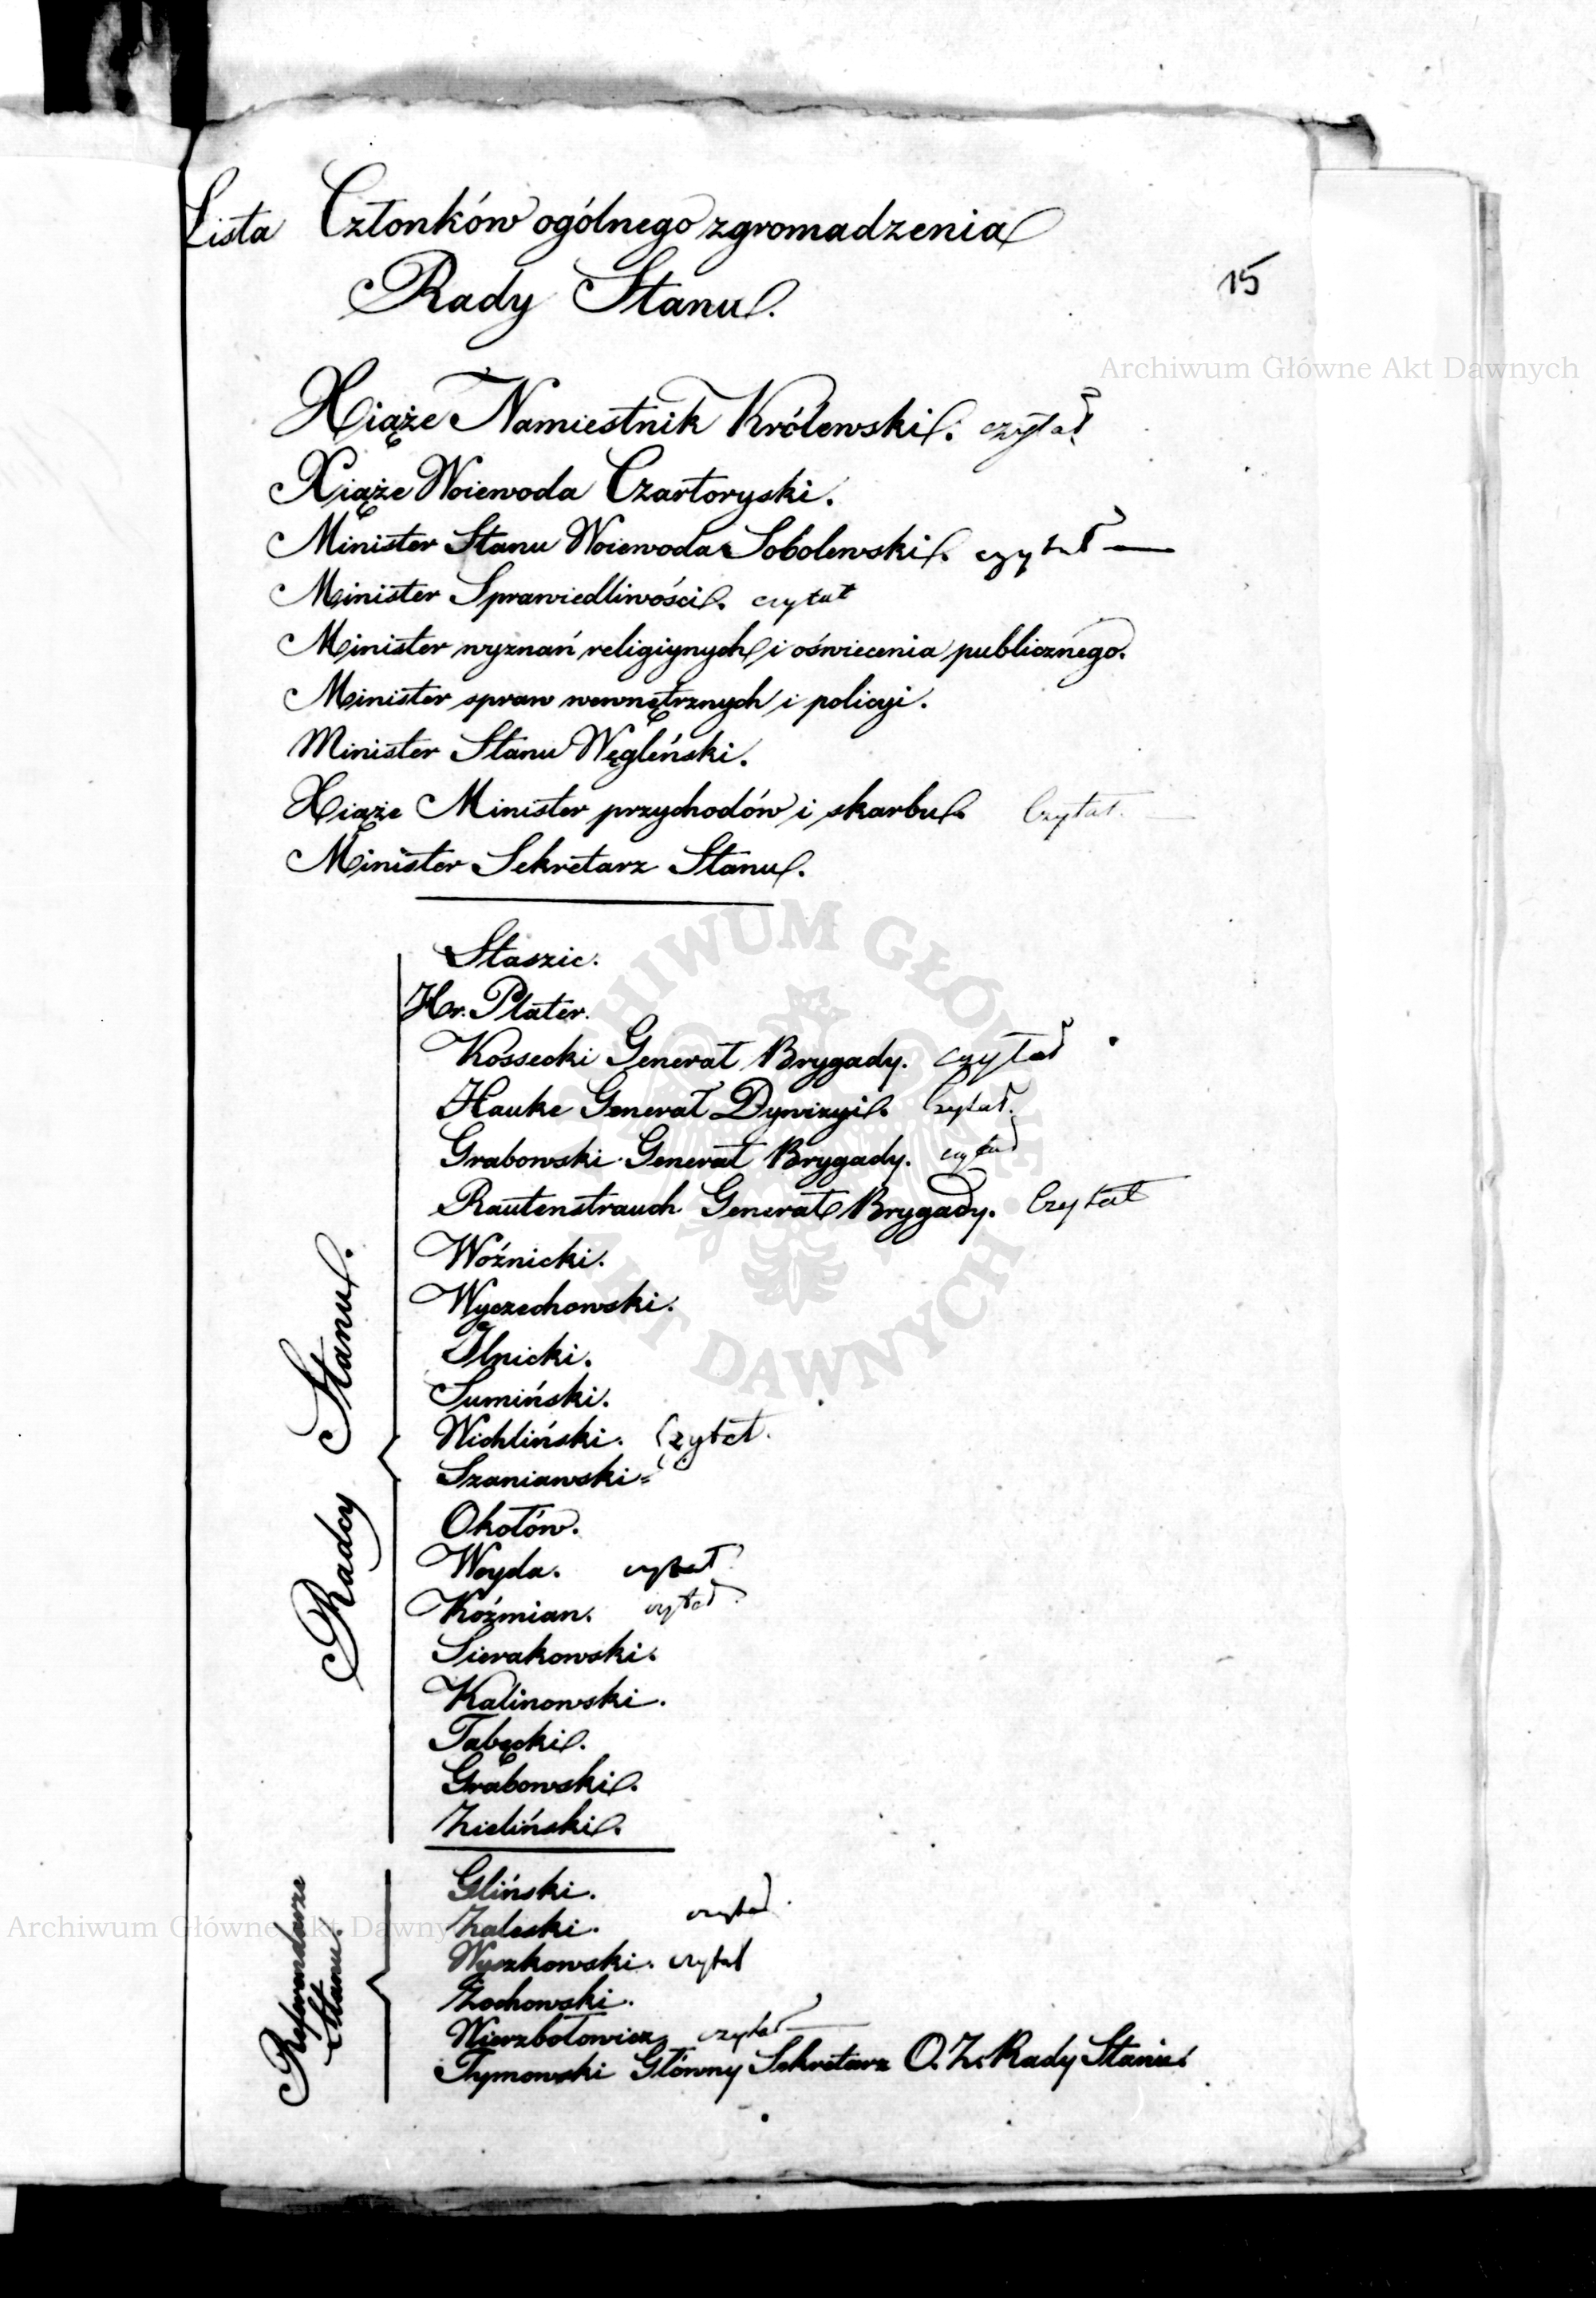 Lista Członków ogólnego zgromadzenia
Rady Stanu.
15
Archiwum Główne Akt Dawnych
Xiąże Namiestnik Królewski. czytał
Xiąże Woiewoda Czartoryski.
Minister Stanu Woiewoda Sobolewski. czytał —
Minister Sprawiedliwości. czytał
Minister wyznań religiynych i oświecenia publicznego.
Minister spraw wewnętrznych i policyi.
Minister Stanu Węgleński.
Xiąże Minister przychodów i skarbu. Czytał. —
Minister Sekretarz Stanu.
Radcy Stanu.
Staszic.
Hr. Plater.
Kossecki Generał Brygady. czytał
Hauke Generał Dywizyi. Czytał.
Grabowski Generał Brygady. czytał
Rautenstrauch Generał Brygady. Czytał
Woźnicki.
Wyczechowski.
Ilnicki.
Sumiński.
Wichliński. Czytał.
Szaniawski
Okołów.
Woyda. czytał
Koźmian. czytał
Sierakowski.
Kalinowski.
Tabęcki.
Grabowski.
Zieliński.
Referendarze
Stanu.
Gliński.
Zaleski. czytał
Wyszkowski. czytał
Żochowski.
Wierzbołowicz czytał —
Tymowski Główny Sekretarz O. Z. Rady Stanu.
Archiwum Główne Akt Dawnych
ARCHIWUM GŁÓWNE AKT DAWNYCH